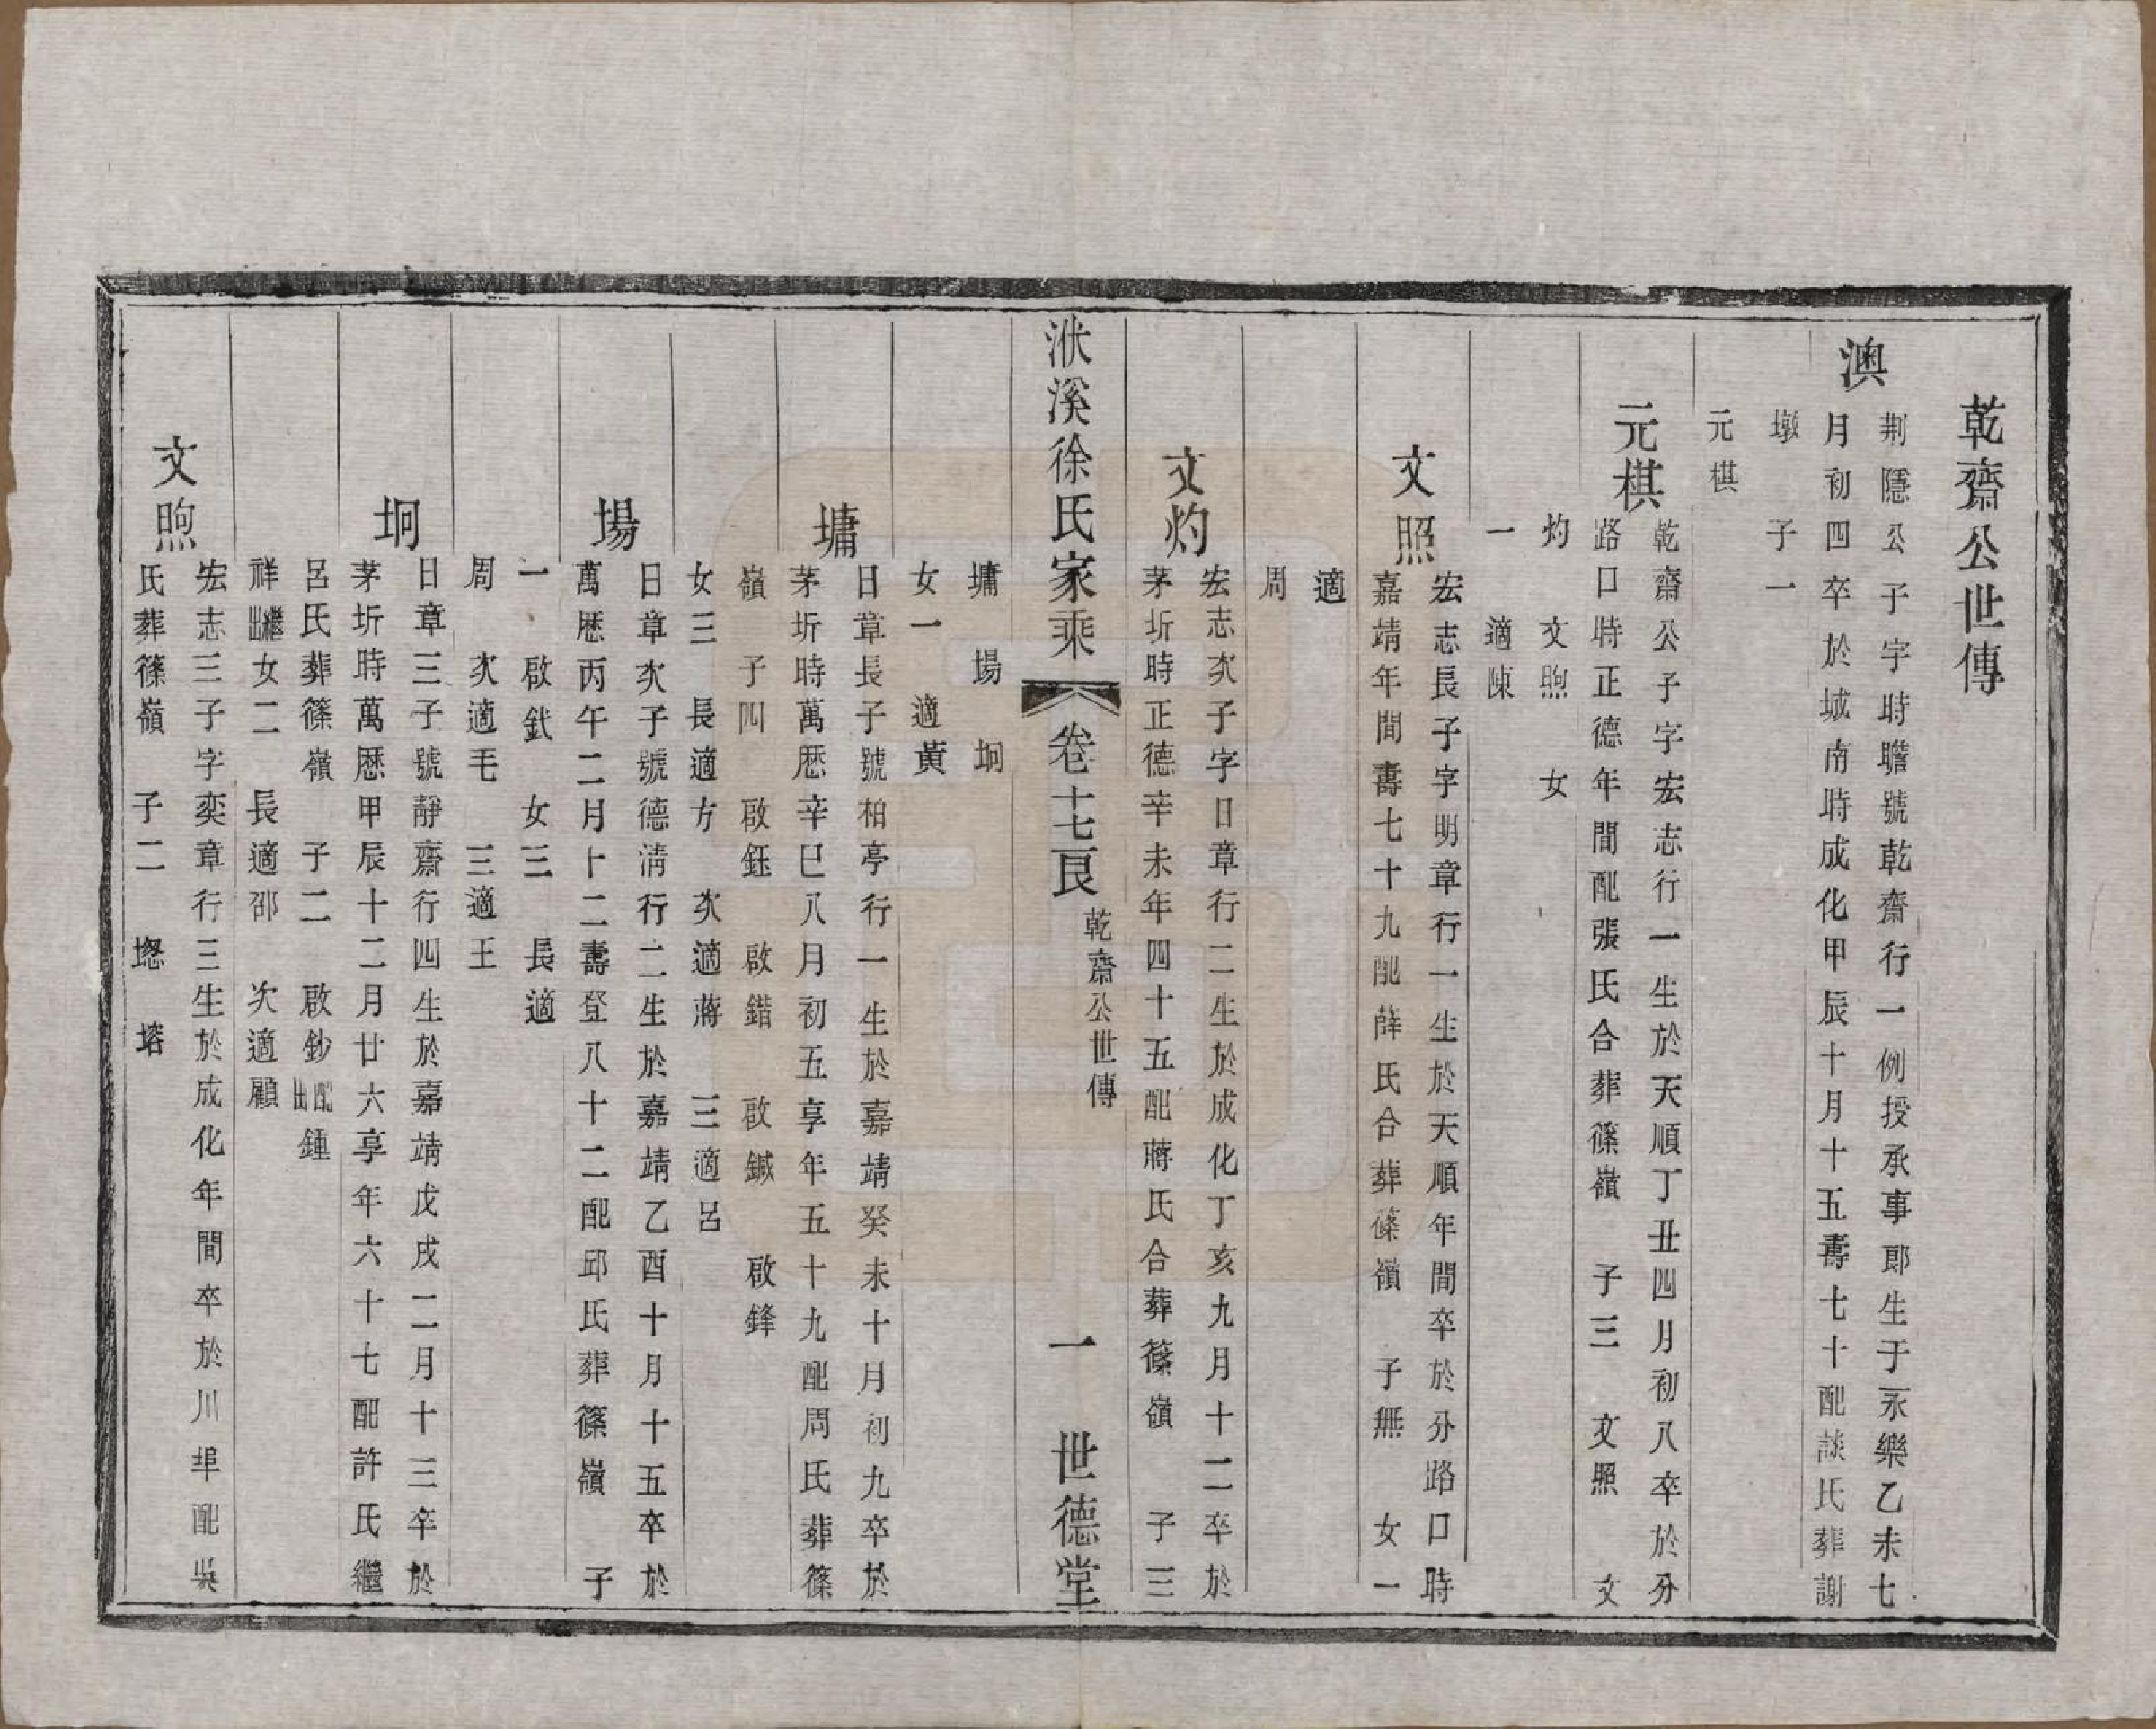 乾齋公世傳
澳
荆隱公子字時瞻號乾齋行一例授承事郎生于永樂乙未七
月初四卒於城南時成化甲辰十月十五壽七十配談氏葬謝
墩 子一
元棋
元棋
乾齋公子字宏志行一生於天順丁丑四月初八卒於分
路口時正德年間配張氏合葬篠嶺 子三 文照 文
灼 文煦 女
一 適陳
文照
宏志長子字明章行一生於天順年間卒於分路口時
嘉靖年間壽七十九配薛氏合葬篠嶺 子無 女一
適
周
文灼
宏志次子字日章行二生於成化丁亥九月十二卒於
茅圻時正德辛未年四十五配蔣氏合葬篠嶺 子三
洑溪徐氏家乘 卷十七艮 乾齋公世傳 一 世德堂
墉 場 坰
女一 適黃
墉
日章長子號柏亭行一生於嘉靖癸未十月初九卒於
茅圻時萬厯辛巳八月初五享年五十九配周氏葬篠
嶺 子四 啟鈺 啟錯 啟鍼 啟鋒
女三 長適方 次適蔣 三適呂
場
日章次子號德清行二生於嘉靖乙酉十月十五卒於
萬厯丙午二月十二壽登八十二配邱氏葬篠嶺 子
一 啟釴 女三 長適
周 次適毛 三適王
坰
日章三子號靜齋行四生於嘉靖戊戌二月十三卒於
茅圻時萬厯甲辰十二月廿六享年六十七配許氏繼
呂氏葬篠嶺 子二 啟鈔配出 鍾
祥繼出 女二 長適邵 次適顧
文煦
宏志三子字奕章行三生於成化年間卒於川埠配吳
氏葬篠嶺 子二 塂 塎